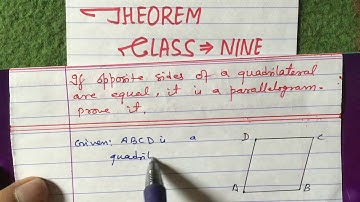 THEOREM
CLASS ⇒ NINE
If opposite sides of a quadrilateral
are equal, it is a parallelogram.
Prove it.
Given: ABCD is a
quadril
D C
A B